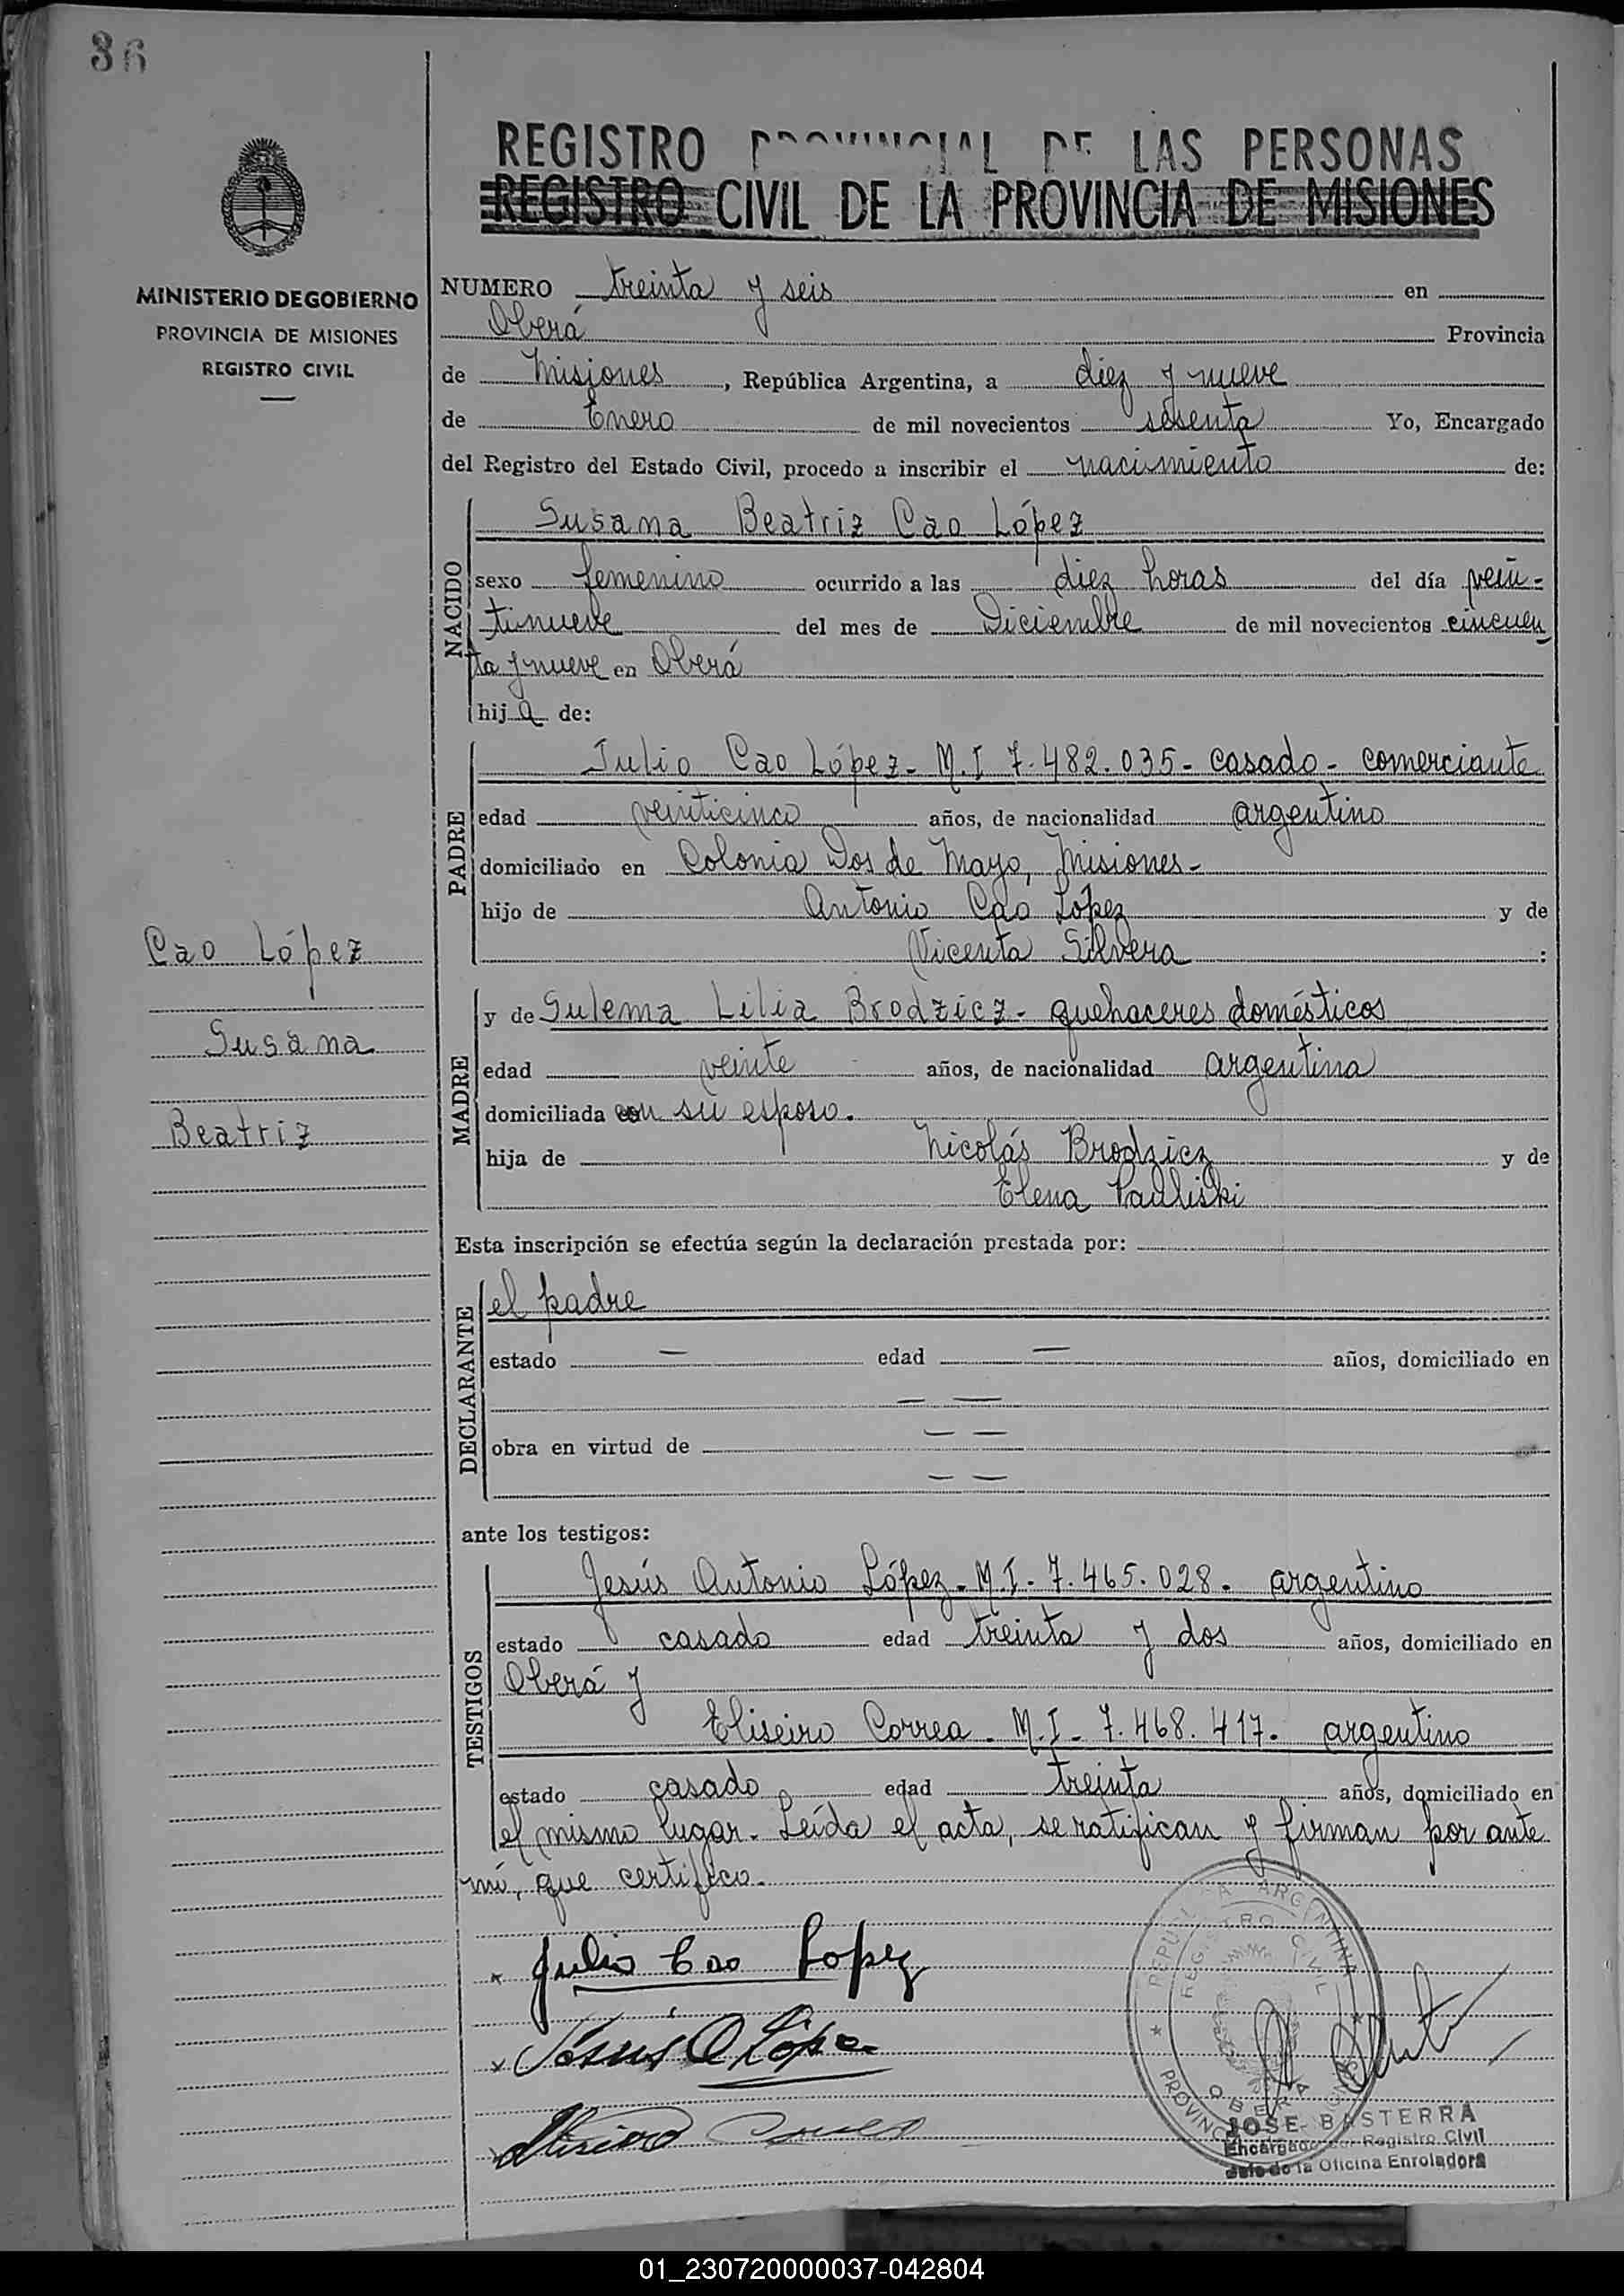 36
REGISTRO PROVINCIAL DE LAS PERSONAS
REGISTRO CIVIL DE LA PROVINCIA DE MISIONES
MINISTERIO DE GOBIERNO
PROVINCIA DE MISIONES
REGISTRO CIVIL
NUMERO treinta y seis en
Oberá Provincia
de Misiones, República Argentina, a diez y nueve
de Enero de mil novecientos sesenta Yo, Encargado
del Registro del Estado Civil, procedo a inscribir el nacimiento de:
NACIDO
Susana Beatriz Cao López
sexo femenino ocurrido a las diez horas del día vein-
tinueve del mes de Diciembre de mil novecientos cincuen
ta y nueve en Oberá
hija de:
PADRE
Julio Cao López- M.I 7.482.035- casado- comerciante
edad veinticinco años, de nacionalidad argentino
domiciliado en Colonia Dos de Mayo, Misiones-
hijo de Antonio Cao López y de
Vicenta Silvera :
Cao López
Susana
Beatriz
MADRE
y de Sulema Lilia Brodzicz- quehaceres domésticos
edad veinte años, de nacionalidad argentina
domiciliada con su esposo.
hija de Nicolás Brodzicz y de
Elena Pauliski
Esta inscripción se efectúa según la declaración prestada por:
DECLARANTE
el padre
estado — edad — años, domiciliado en
— —
obra en virtud de — —
— —
ante los testigos:
TESTIGOS
Jesús Antonio López- M.I- 7.465.028. argentino
estado casado edad treinta y dos años, domiciliado en
Oberá y
Eliseiro Correa. M.I- 7.468.417. argentino
estado casado edad treinta años, domiciliado en
el mismo lugar. Leída el acta, se ratifican y firman por ante
mí, que certifico.
Julio Cao Lopez
Jesús A López
REPUBLICA ARGENTINA
REGISTRO CIVIL
OBERA
JOSE BASTERRA
Encargado del Registro Civil
Jefe de la Oficina Enroladora
01_230720000037-042804